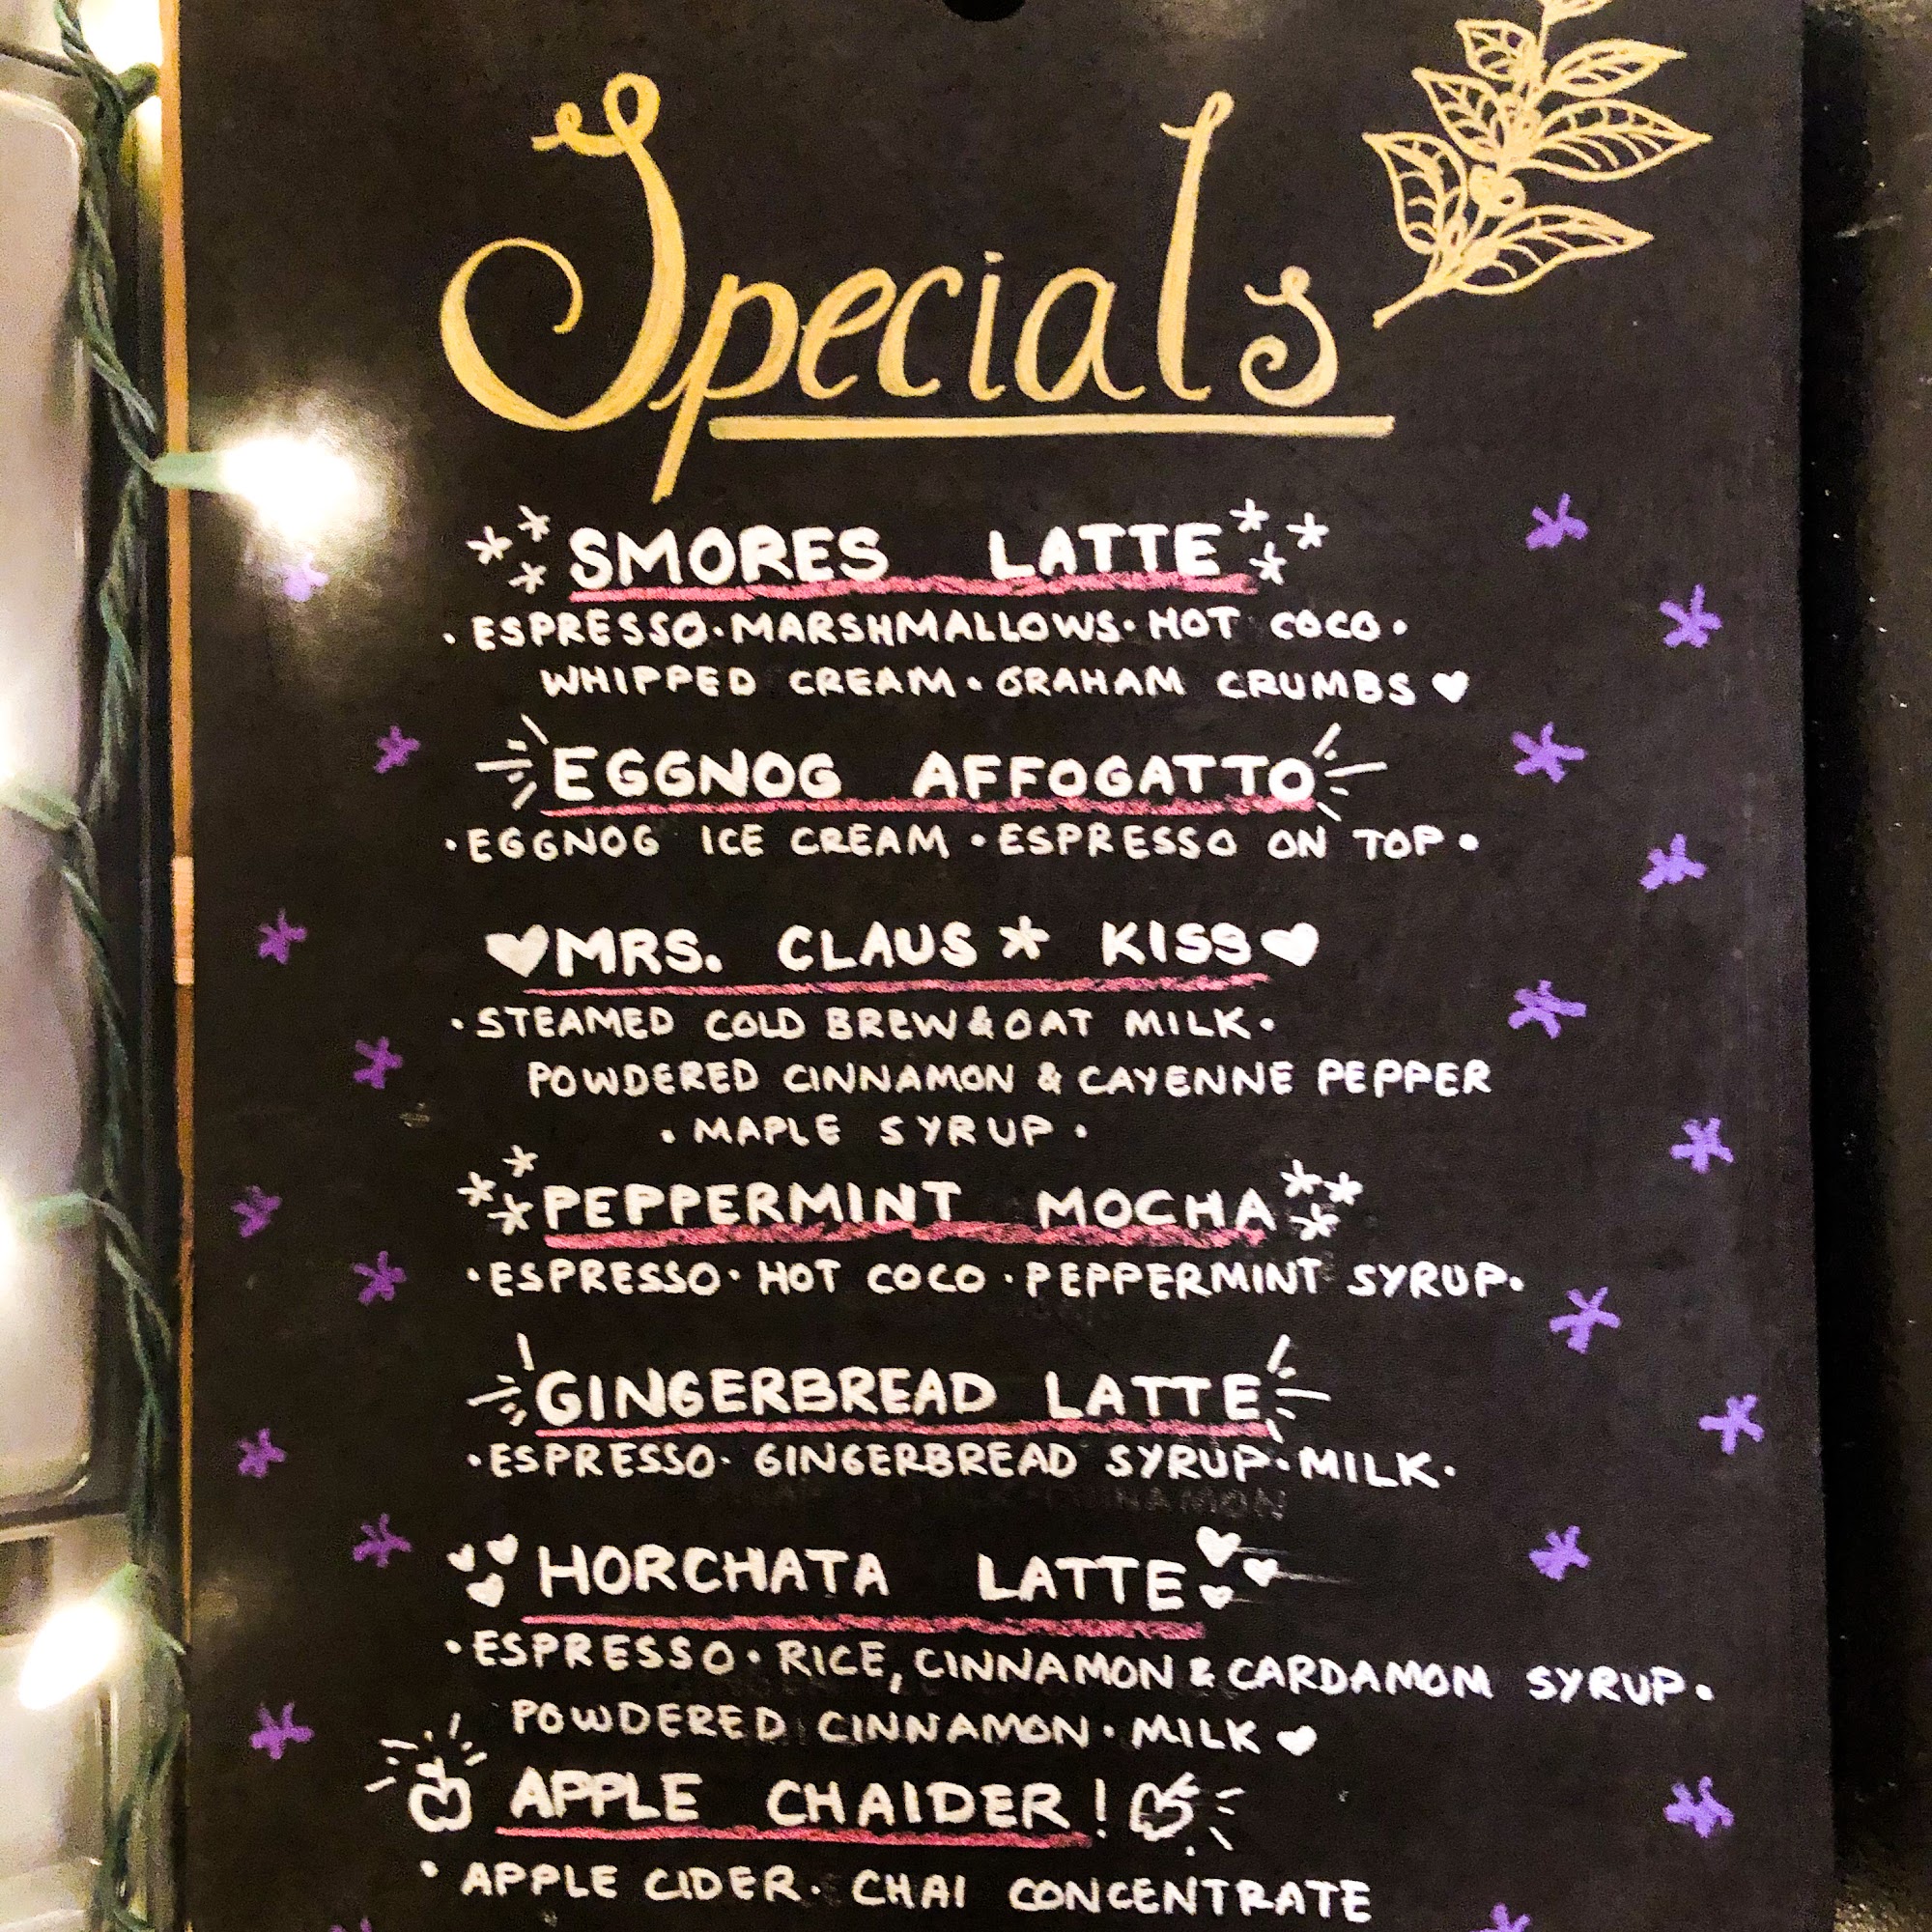 Specials
SMORES LATTE
· ESPRESSO · MARSHMALLOWS · HOT COCO ·
WHIPPED CREAM · GRAHAM CRUMBS ♥
EGGNOG AFFOGATTO
· EGGNOG ICE CREAM · ESPRESSO ON TOP ·
♥ MRS. CLAUS * KISS ♥
· STEAMED COLD BREW & OAT MILK ·
POWDERED CINNAMON & CAYENNE PEPPER
· MAPLE SYRUP ·
PEPPERMINT MOCHA
· ESPRESSO · HOT COCO · PEPPERMINT SYRUP ·
GINGERBREAD LATTE
· ESPRESSO · GINGERBREAD SYRUP · MILK ·
HORCHATA LATTE
· ESPRESSO · RICE, CINNAMON & CARDAMOM SYRUP ·
POWDERED CINNAMON · MILK ♥
APPLE CHAIDER!
· APPLE CIDER · CHAI CONCENTRATE